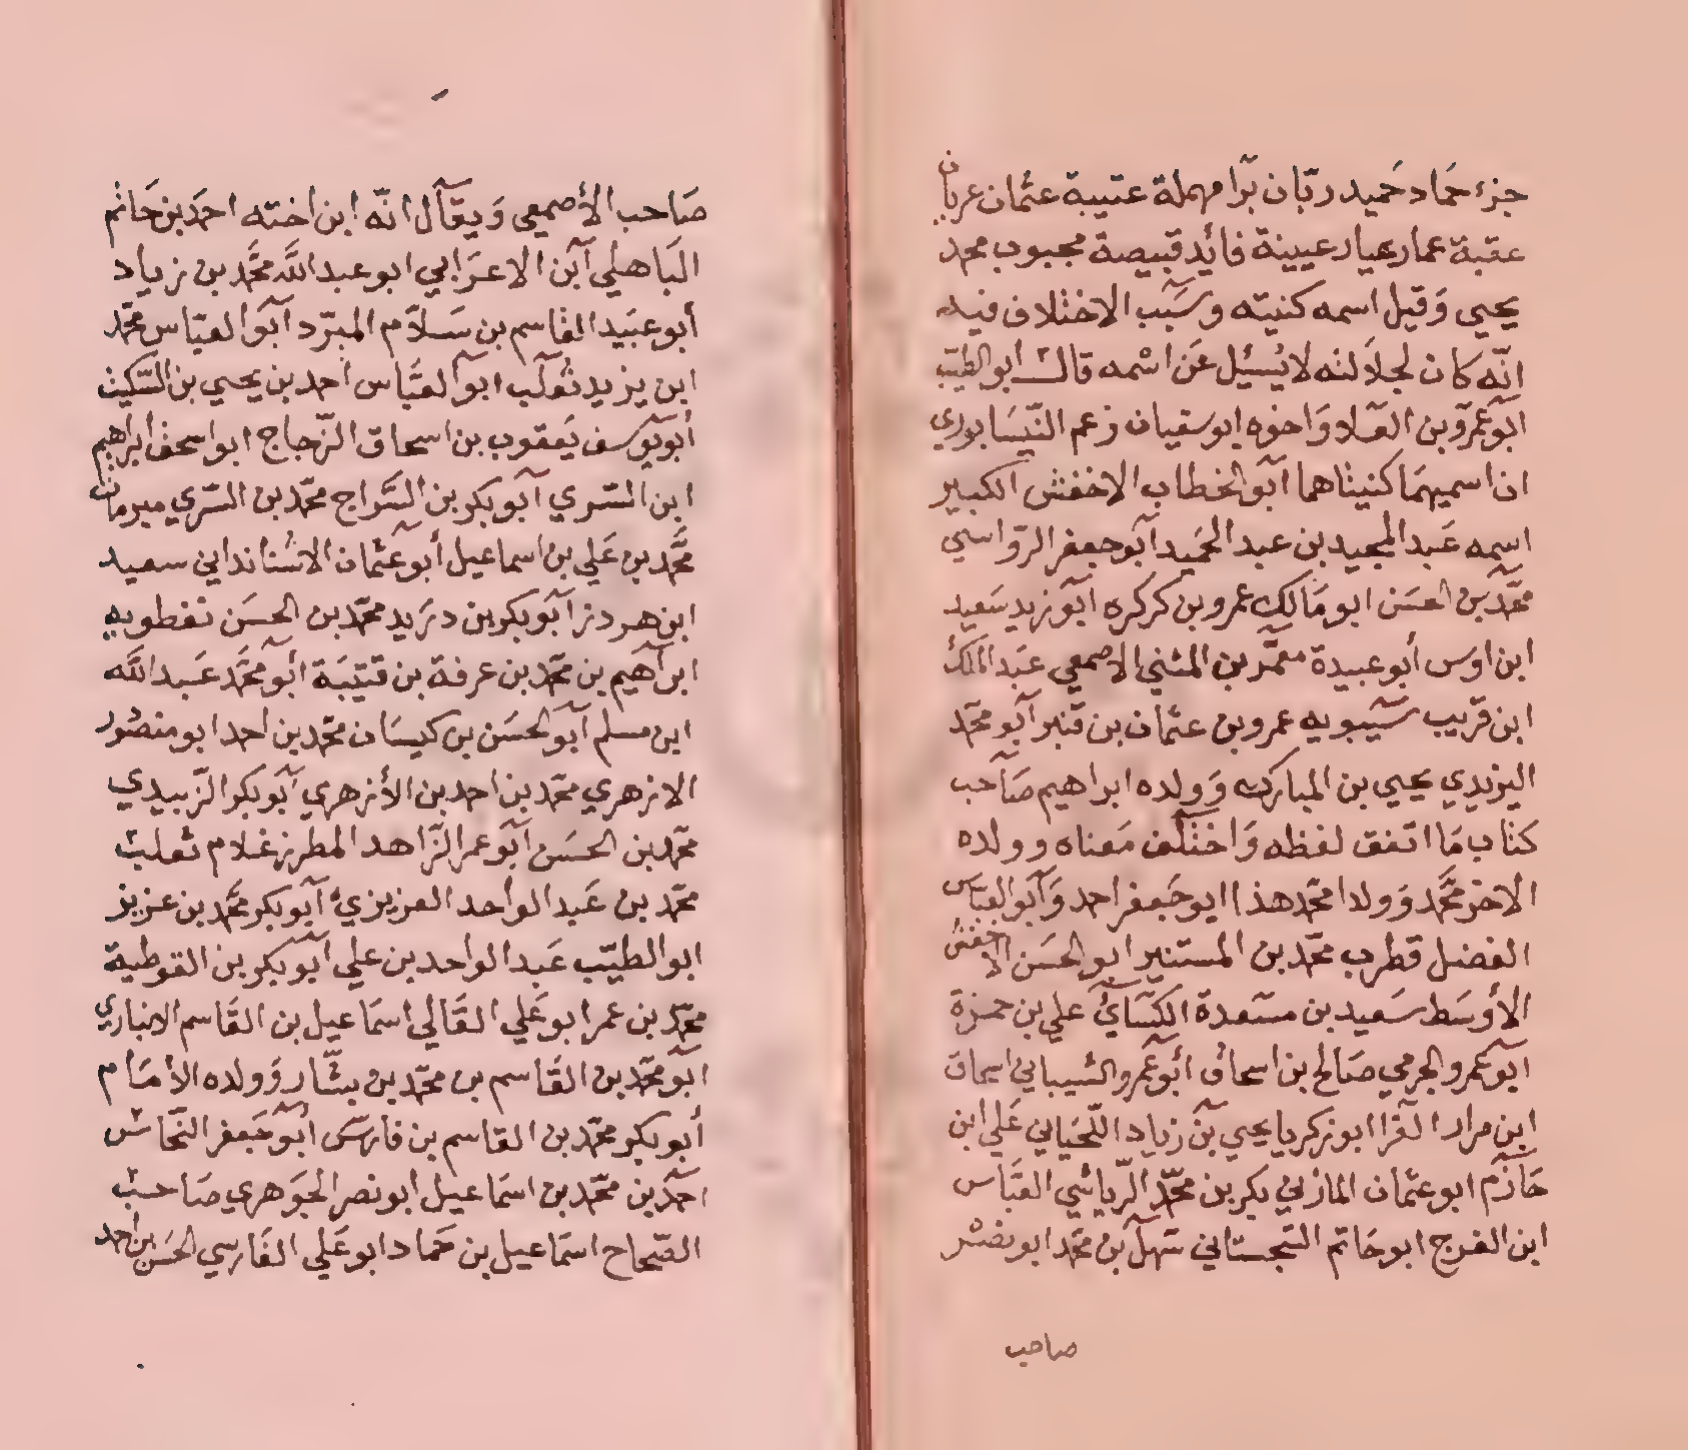 جزء حماد حميد ربّان برا مهملة عتيبة عثمان عريان
عقبة عمار عيار عيينة فائد قبيصة محبوب محمد
يحيى وَقيل اسمه كنيته وسَبب الاختلاف فيه
انّه كان لجلالته لا يُسئل عَن اسْمه قال أبو الطيّب
ابو عمرو بن العلاء وَاخوه ابو سفيان زعم النّيسَابوري
ان اسميهمَا كنيتاهما ابو الخطاب الاخفش الكبير
اسمه عَبد المجيد بن عبد الحميد ابو جعفر الرّواسي
محمّد بن الحسَن ابو مَالك عمرو بن كركره ابو زيد سَعيد
ابن اوس أبو عبيدة معمّر بن المثني الاصمعي عَبد الملك
ابن قريب سيبويه عمرو بن عثمان بن قنبر ابو محمّد
اليزيدي يحيي بن المبارك وَولده ابراهيم صَاحب
كتاب مَا اتفق لفظه وَاختلف مَعناه وولده
الاخر محمَّد وَولدا محمّد هذا ابو جَعفر احمد وَابو العبّاس
الفضل قطرب محمّد بن المستنير ابو الحسَن الاخفش
الأوسَط سَعيد بن مسَعدة الكسَائيُ علي بن حمزة
ابو عمرو الجرمي صَالح بن اسحاق أبو عمرو الشيباني اسحاق
ابن مرار الفرا ابو زكريا يحيي بن زياد اللّحيَاني عَلي ابن
حَازم ابو عثمان المازني بكر بن محمّد الرّياشي العبَّاس
ابن الفرج ابو حَاتم السّجستاني سَهل بن محمّد ابو نصر
صاحب
صَاحب الأصمعي وَيقال انّه ابن اخته احمَد بن حَاتم
البَاهلي ابن الاعرَابي ابو عبد اللَّه محمَّد بن زياد
أبو عبَيد القاسم بن سَلاَّم المبرّد ابو العبّاس محمّد
ابن يزيد ثعلب ابو العبَّاس احمد بن يحيي بن السّكيت
أبو يوسف يَعقوب بن اسحاق الزّجاج ابو اسحق ابراهيم
ابن السّري ابو بكر بن السَّراج محمّد بن السّري مبرمان
محمَّد بن عَلي بن اسماعيل أبو عثمان الاشنانداني سعيد
ابن هردز ابو بكر بن دريد محمّد بن الحسَن نفطويه
ابراهيم بن محمّد بن عرفة بن قتيَبَة ابو محمَّد عَبد اللَّه
ابن مسلم ابو الحسَن بن كيسَان محمّد بن احمد ابو منصُور
الازهري محمّد بن احمد بن الأزهري ابو بكر الزّبيدي
محمّد بن الحسَن ابو عمر الزّاهد المطرز غلام ثعلب
محمّد بن عَبد الواحد العزيزي ابو بكر محمَّد بن عزيز
ابو الطيّب عَبد الواحد بن علي ابو بكر بن القوطية
محمّد بن عمر ابو عَلي القَالي اسمَاعيل بن القَاسم الانباري
ابو محمّد بن القَاسم بن محمّد بن بشّار وَولده الأمَام
أبو بكر محمّد بن القاسم بن فارسَ ابو جَعفر النّحاس
احمَد بن محمّد بن اسمَاعيل ابو نصر الجوَهري صَاحب
الصّحاح اسمَاعيل بن حَماد ابو عَلي الفَارسي الحسَن بن احمد